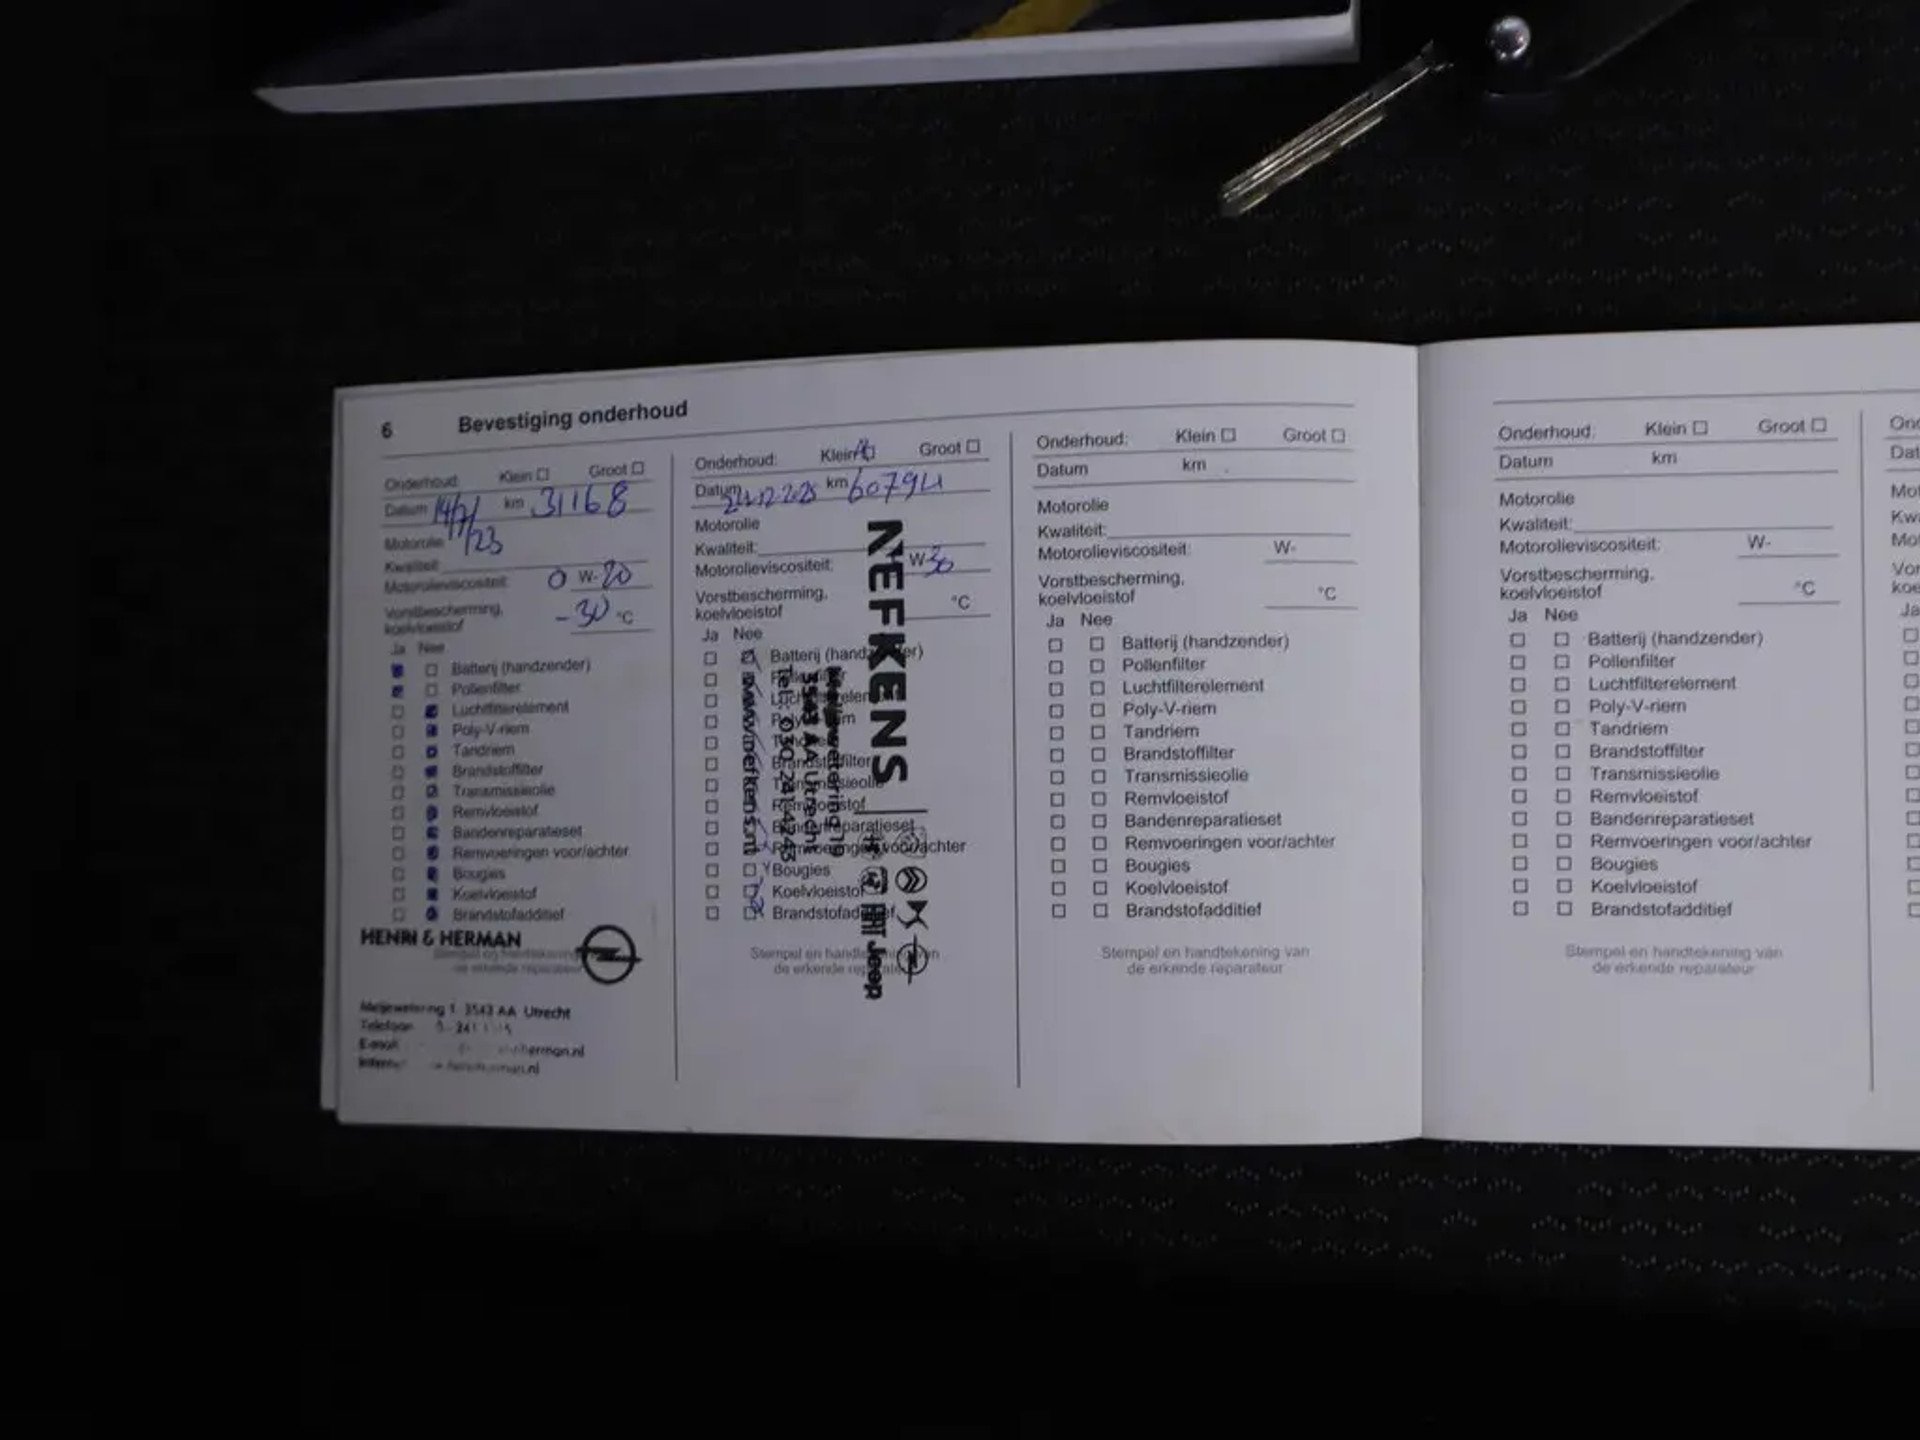 6 Bevestiging onderhoud
Onderhoud: Klein ☐ Groot ☐
Datum 14/7/23 km 31168
Motorolie
Kwaliteit:
Motorolieviscositeit: 0 W-20
Vorstbescherming,
koelvloeistof -30 °C
Ja Nee
Batterij (handzender)
Pollenfilter
Luchtfilterelement
Poly-V-riem
Tandriem
Brandstoffilter
Transmissieolie
Remvloeistof
Bandenreparatieset
Remvoeringen voor/achter
Bougies
Koelvloeistof
Brandstofadditief
HENRI & HERMAN
Stempel en handtekening
de erkende reparateur
1 3543 AA Utrecht
Telefoon
E-mail herman.nl
Onderhoud: Klein Groot ☐
Datum km 60794
Motorolie
Kwaliteit:
Motorolieviscositeit: W 30
Vorstbescherming,
koelvloeistof °C
Ja Nee
Batterij (handzender)
Pollenfilter
Luchtfilterelement
Poly-V-riem
Tandriem
Brandstoffilter
Transmissieolie
Remvloeistof
Bandenreparatieset
Remvoeringen voor/achter
Bougies
Koelvloeistof
Brandstofadditief
Stempel en handtekening van
de erkende reparateur
NEFKENS
3543 AA Utrecht
www.nefkens.nl
FIAT Jeep
Onderhoud: Klein ☐ Groot ☐
Datum km
Motorolie
Kwaliteit:
Motorolieviscositeit: W-
Vorstbescherming,
koelvloeistof °C
Ja Nee
☐ ☐ Batterij (handzender)
☐ ☐ Pollenfilter
☐ ☐ Luchtfilterelement
☐ ☐ Poly-V-riem
☐ ☐ Tandriem
☐ ☐ Brandstoffilter
☐ ☐ Transmissieolie
☐ ☐ Remvloeistof
☐ ☐ Bandenreparatieset
☐ ☐ Remvoeringen voor/achter
☐ ☐ Bougies
☐ ☐ Koelvloeistof
☐ ☐ Brandstofadditief
Stempel en handtekening van
de erkende reparateur
Onderhoud: Klein ☐ Groot ☐
Datum km
Motorolie
Kwaliteit:
Motorolieviscositeit: W-
Vorstbescherming,
koelvloeistof °C
Ja Nee
☐ ☐ Batterij (handzender)
☐ ☐ Pollenfilter
☐ ☐ Luchtfilterelement
☐ ☐ Poly-V-riem
☐ ☐ Tandriem
☐ ☐ Brandstoffilter
☐ ☐ Transmissieolie
☐ ☐ Remvloeistof
☐ ☐ Bandenreparatieset
☐ ☐ Remvoeringen voor/achter
☐ ☐ Bougies
☐ ☐ Koelvloeistof
☐ ☐ Brandstofadditief
Stempel en handtekening van
de erkende reparateur